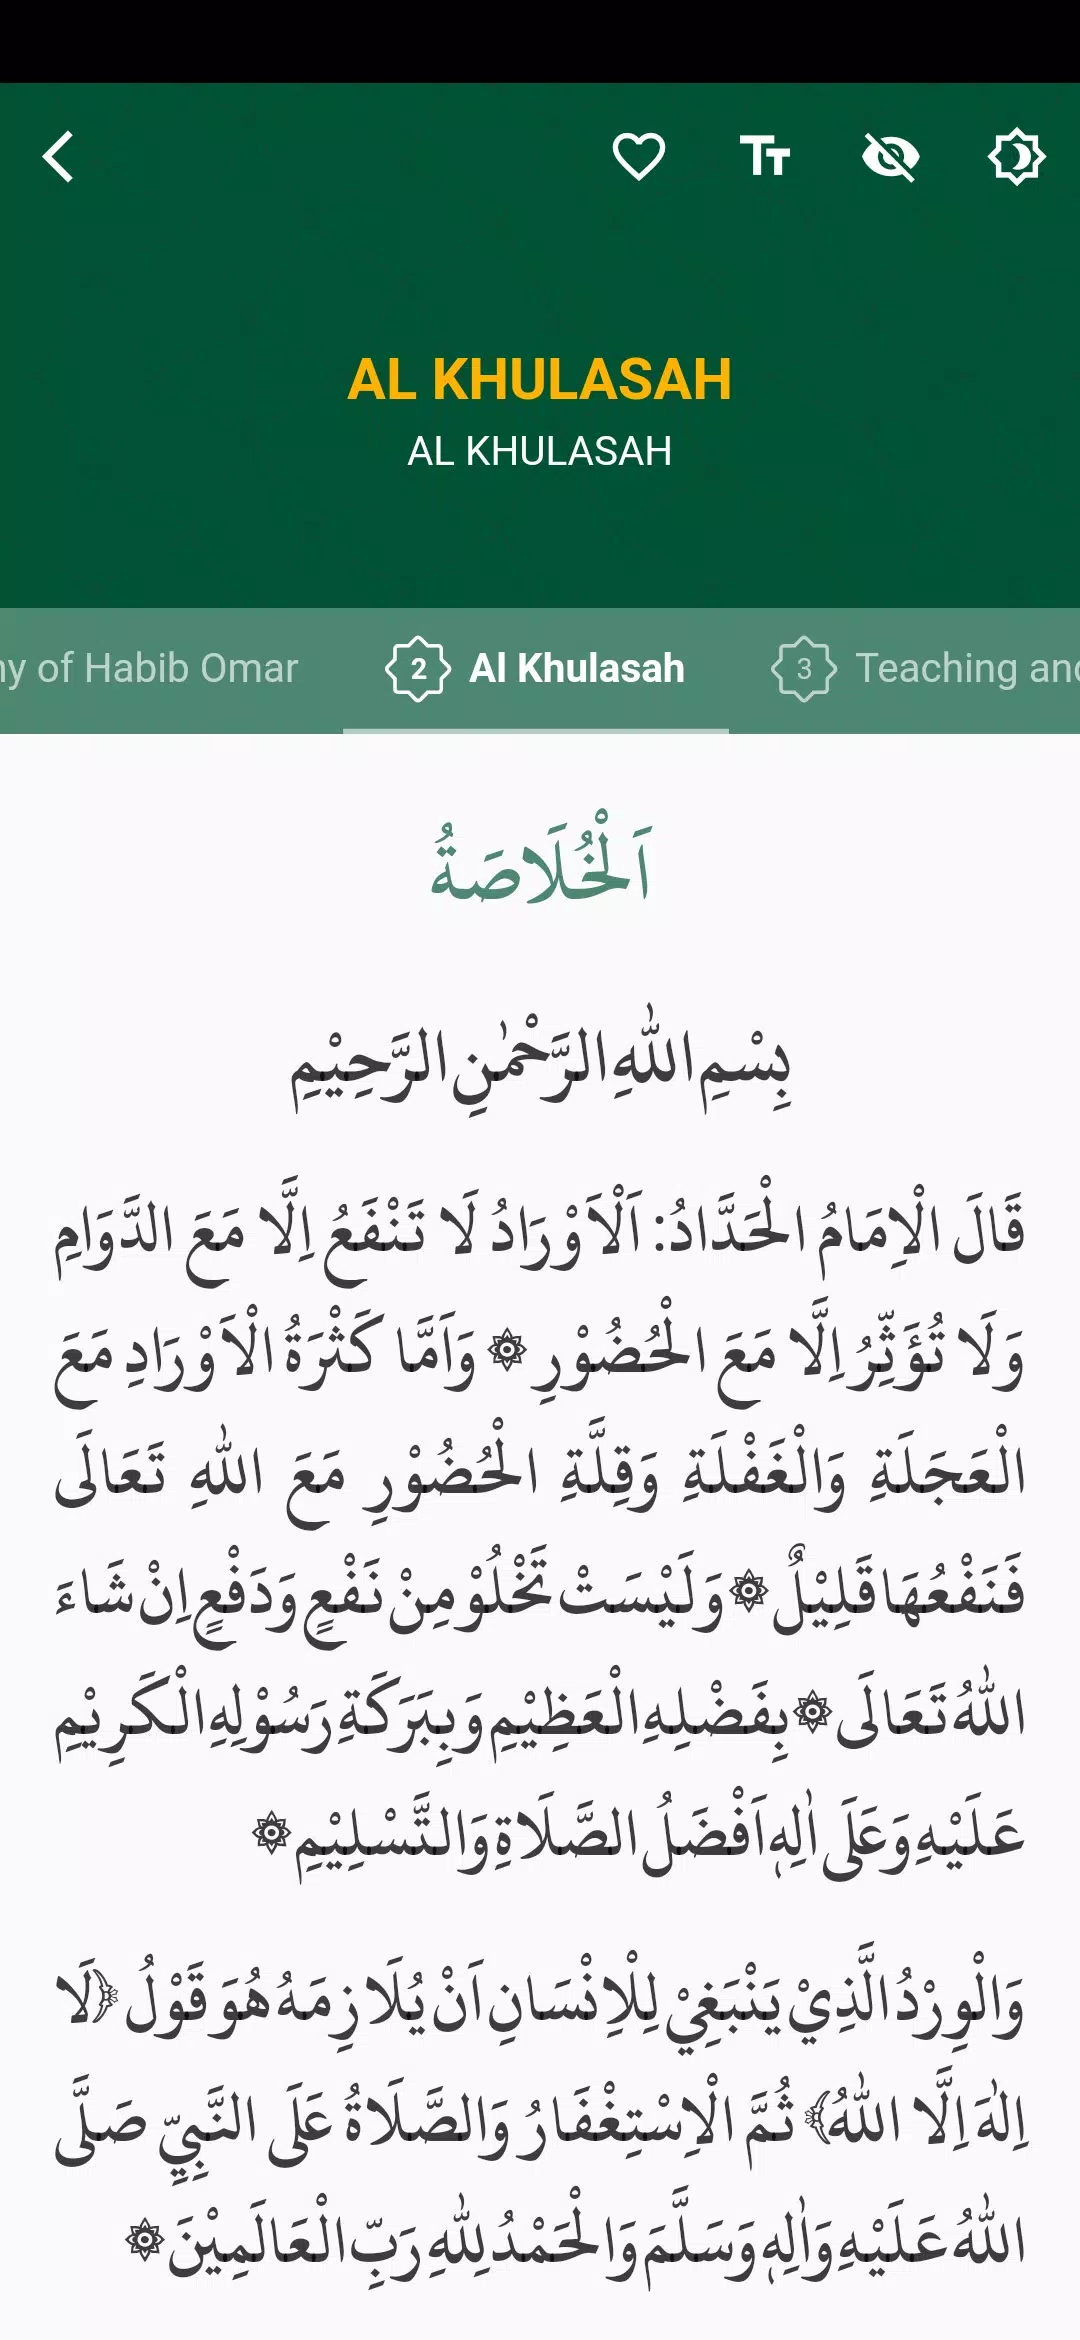 AL KHULASAH
AL KHULASAH
ny of Habib Omar 2 Al Khulasah 3 Teaching and
اَلْخُلَاصَةُ
بِسْمِ اللّٰهِ الرَّحْمٰنِ الرَّحِيْمِ
قَالَ الْاِمَامُ الْحَدَّادُ: اَلْاَوْرَادُ لَا تَنْفَعُ اِلَّا مَعَ الدَّوَامِ
وَلَا تُؤَثِّرُ اِلَّا مَعَ الْحُضُوْرِ ۞ وَاَمَّا كَثْرَةُ الْاَوْرَادِ مَعَ
الْعَجَلَةِ وَالْغَفْلَةِ وَقِلَّةِ الْحُضُوْرِ مَعَ اللّٰهِ تَعَالَى
فَنَفْعُهَا قَلِيْلٌ ۞ وَلَيْسَتْ تَخْلُوْ مِنْ نَفْعٍ وَدَفْعٍ اِنْ شَاءَ
اللّٰهُ تَعَالَى ۞ بِفَضْلِهِ الْعَظِيْمِ وَبِبَرَكَةِ رَسُوْلِهِ الْكَرِيْمِ
عَلَيْهِ وَعَلَى اٰلِهٖ اَفْضَلُ الصَّلَاةِ وَالتَّسْلِيْمِ ۞
وَالْوِرْدُ الَّذِيْ يَنْبَغِيْ لِلْاِنْسَانِ اَنْ يُلَازِمَهُ هُوَ قَوْلُ ﴿لَا
اِلٰهَ اِلَّا اللّٰهُ﴾ ثُمَّ الْاِسْتِغْفَارُ وَالصَّلَاةُ عَلَى النَّبِيِّ صَلَّى
اللّٰهُ عَلَيْهِ وَاٰلِهٖ وَسَلَّمَ وَالْحَمْدُ لِلّٰهِ رَبِّ الْعَالَمِيْنَ ۞